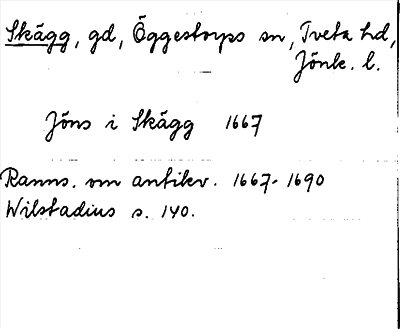 Skägg, gd, Öggestorps sn, Tveta hd,
Jönk. l.
Jöns i Skägg 1667
Ranns. om antikv. 1667-1690
Wilstadius s. 140.